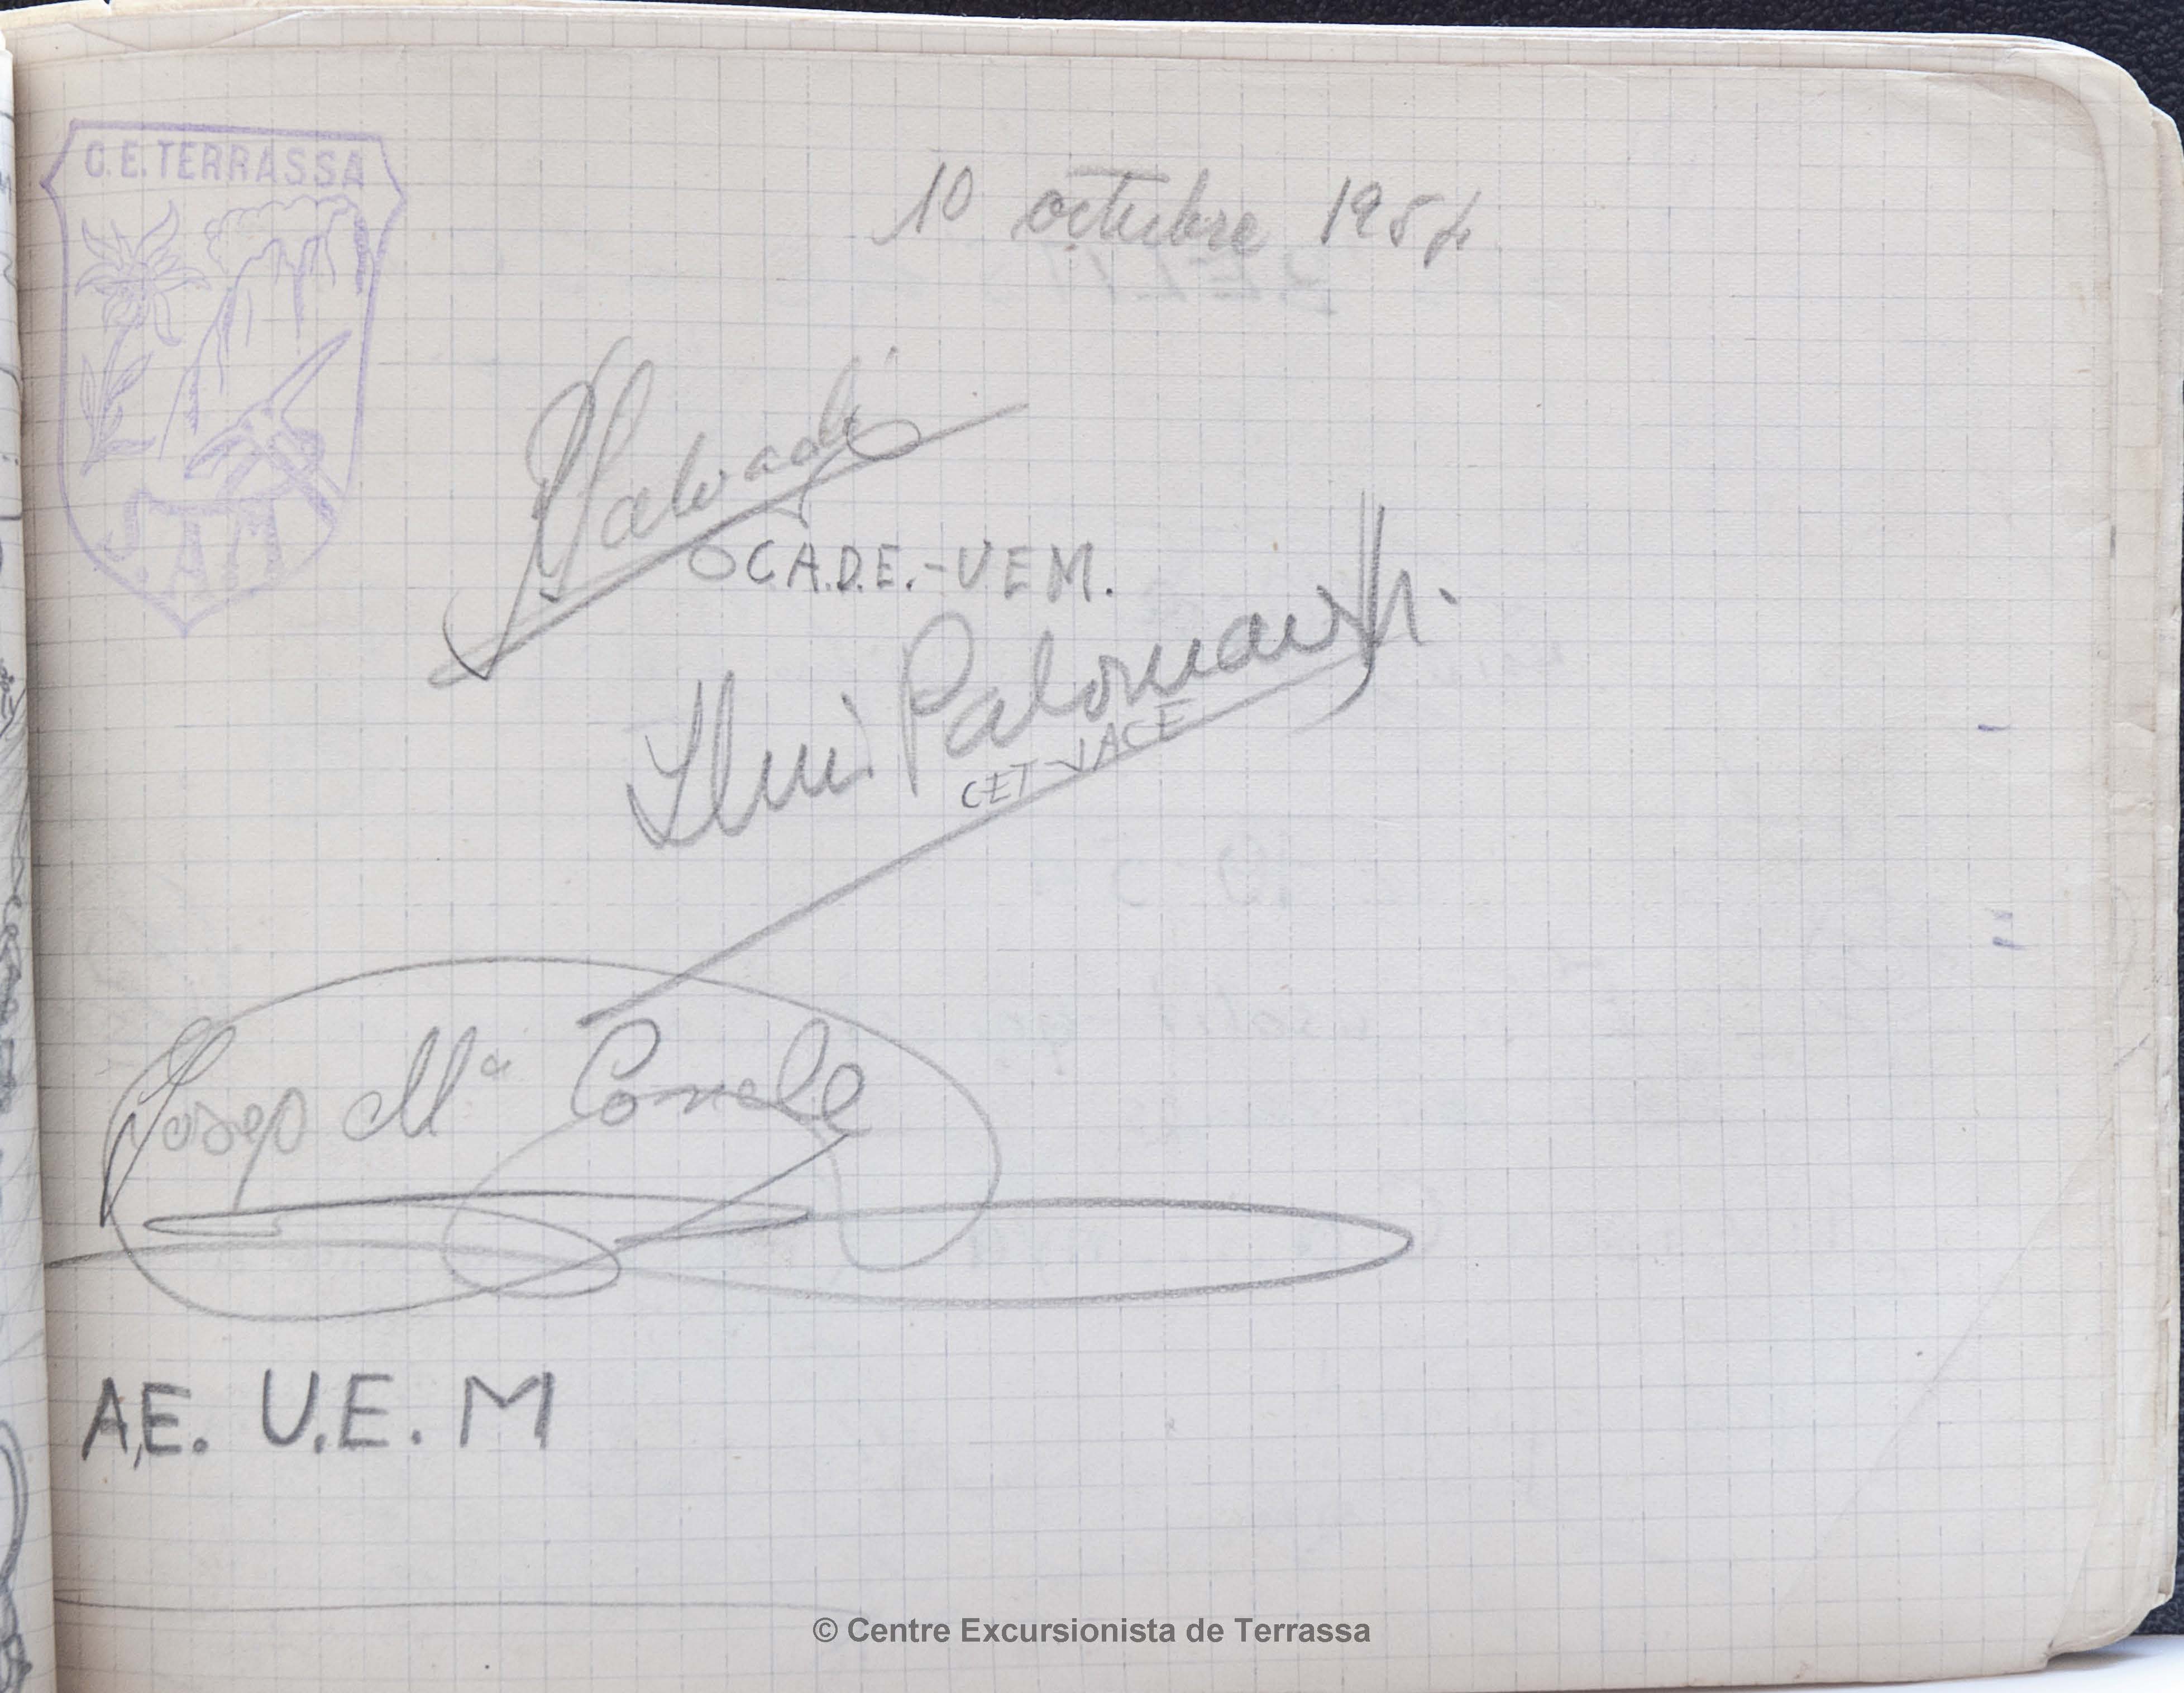 C.E.TERRASSA
S.AM
10 octubre 1954
C.A.D.E.-UEM.
Lluis Palomares
CET-JACE
Josep Mª
A.E. U.E.M
© Centre Excursionista de Terrassa